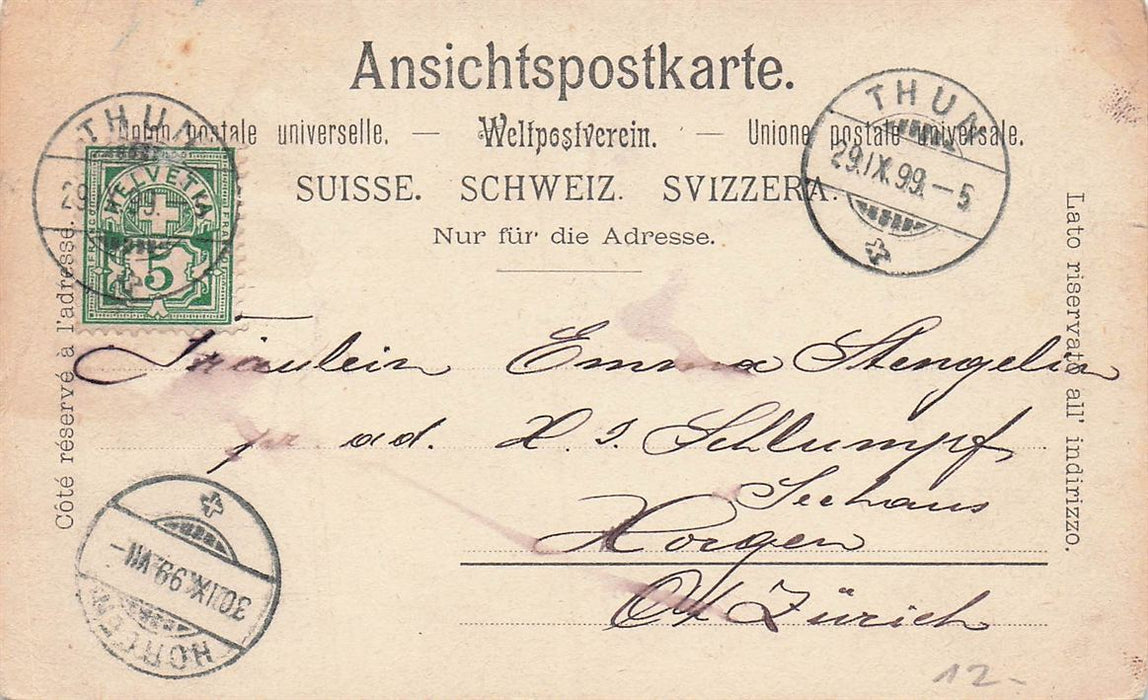 Ansichtspostkarte.
Union postale universelle. — Weltpostverein. — Unione postale universale.
SUISSE. SCHWEIZ. SVIZZERA.
Nur für die Adresse.
THUN
29.IX.99.–5
THUN
29
9.
HELVETIA
FRANCO
FRANCO
5
Côté réservé à l'adresse.
Lato riservato all' indirizzo.
Fräulein Emma Stengelin
pr. ad. H. J. Schlumpf
Seehaus
Horgen
Ct Zürich
30.IX.99.VII–
HORGEN
12.-